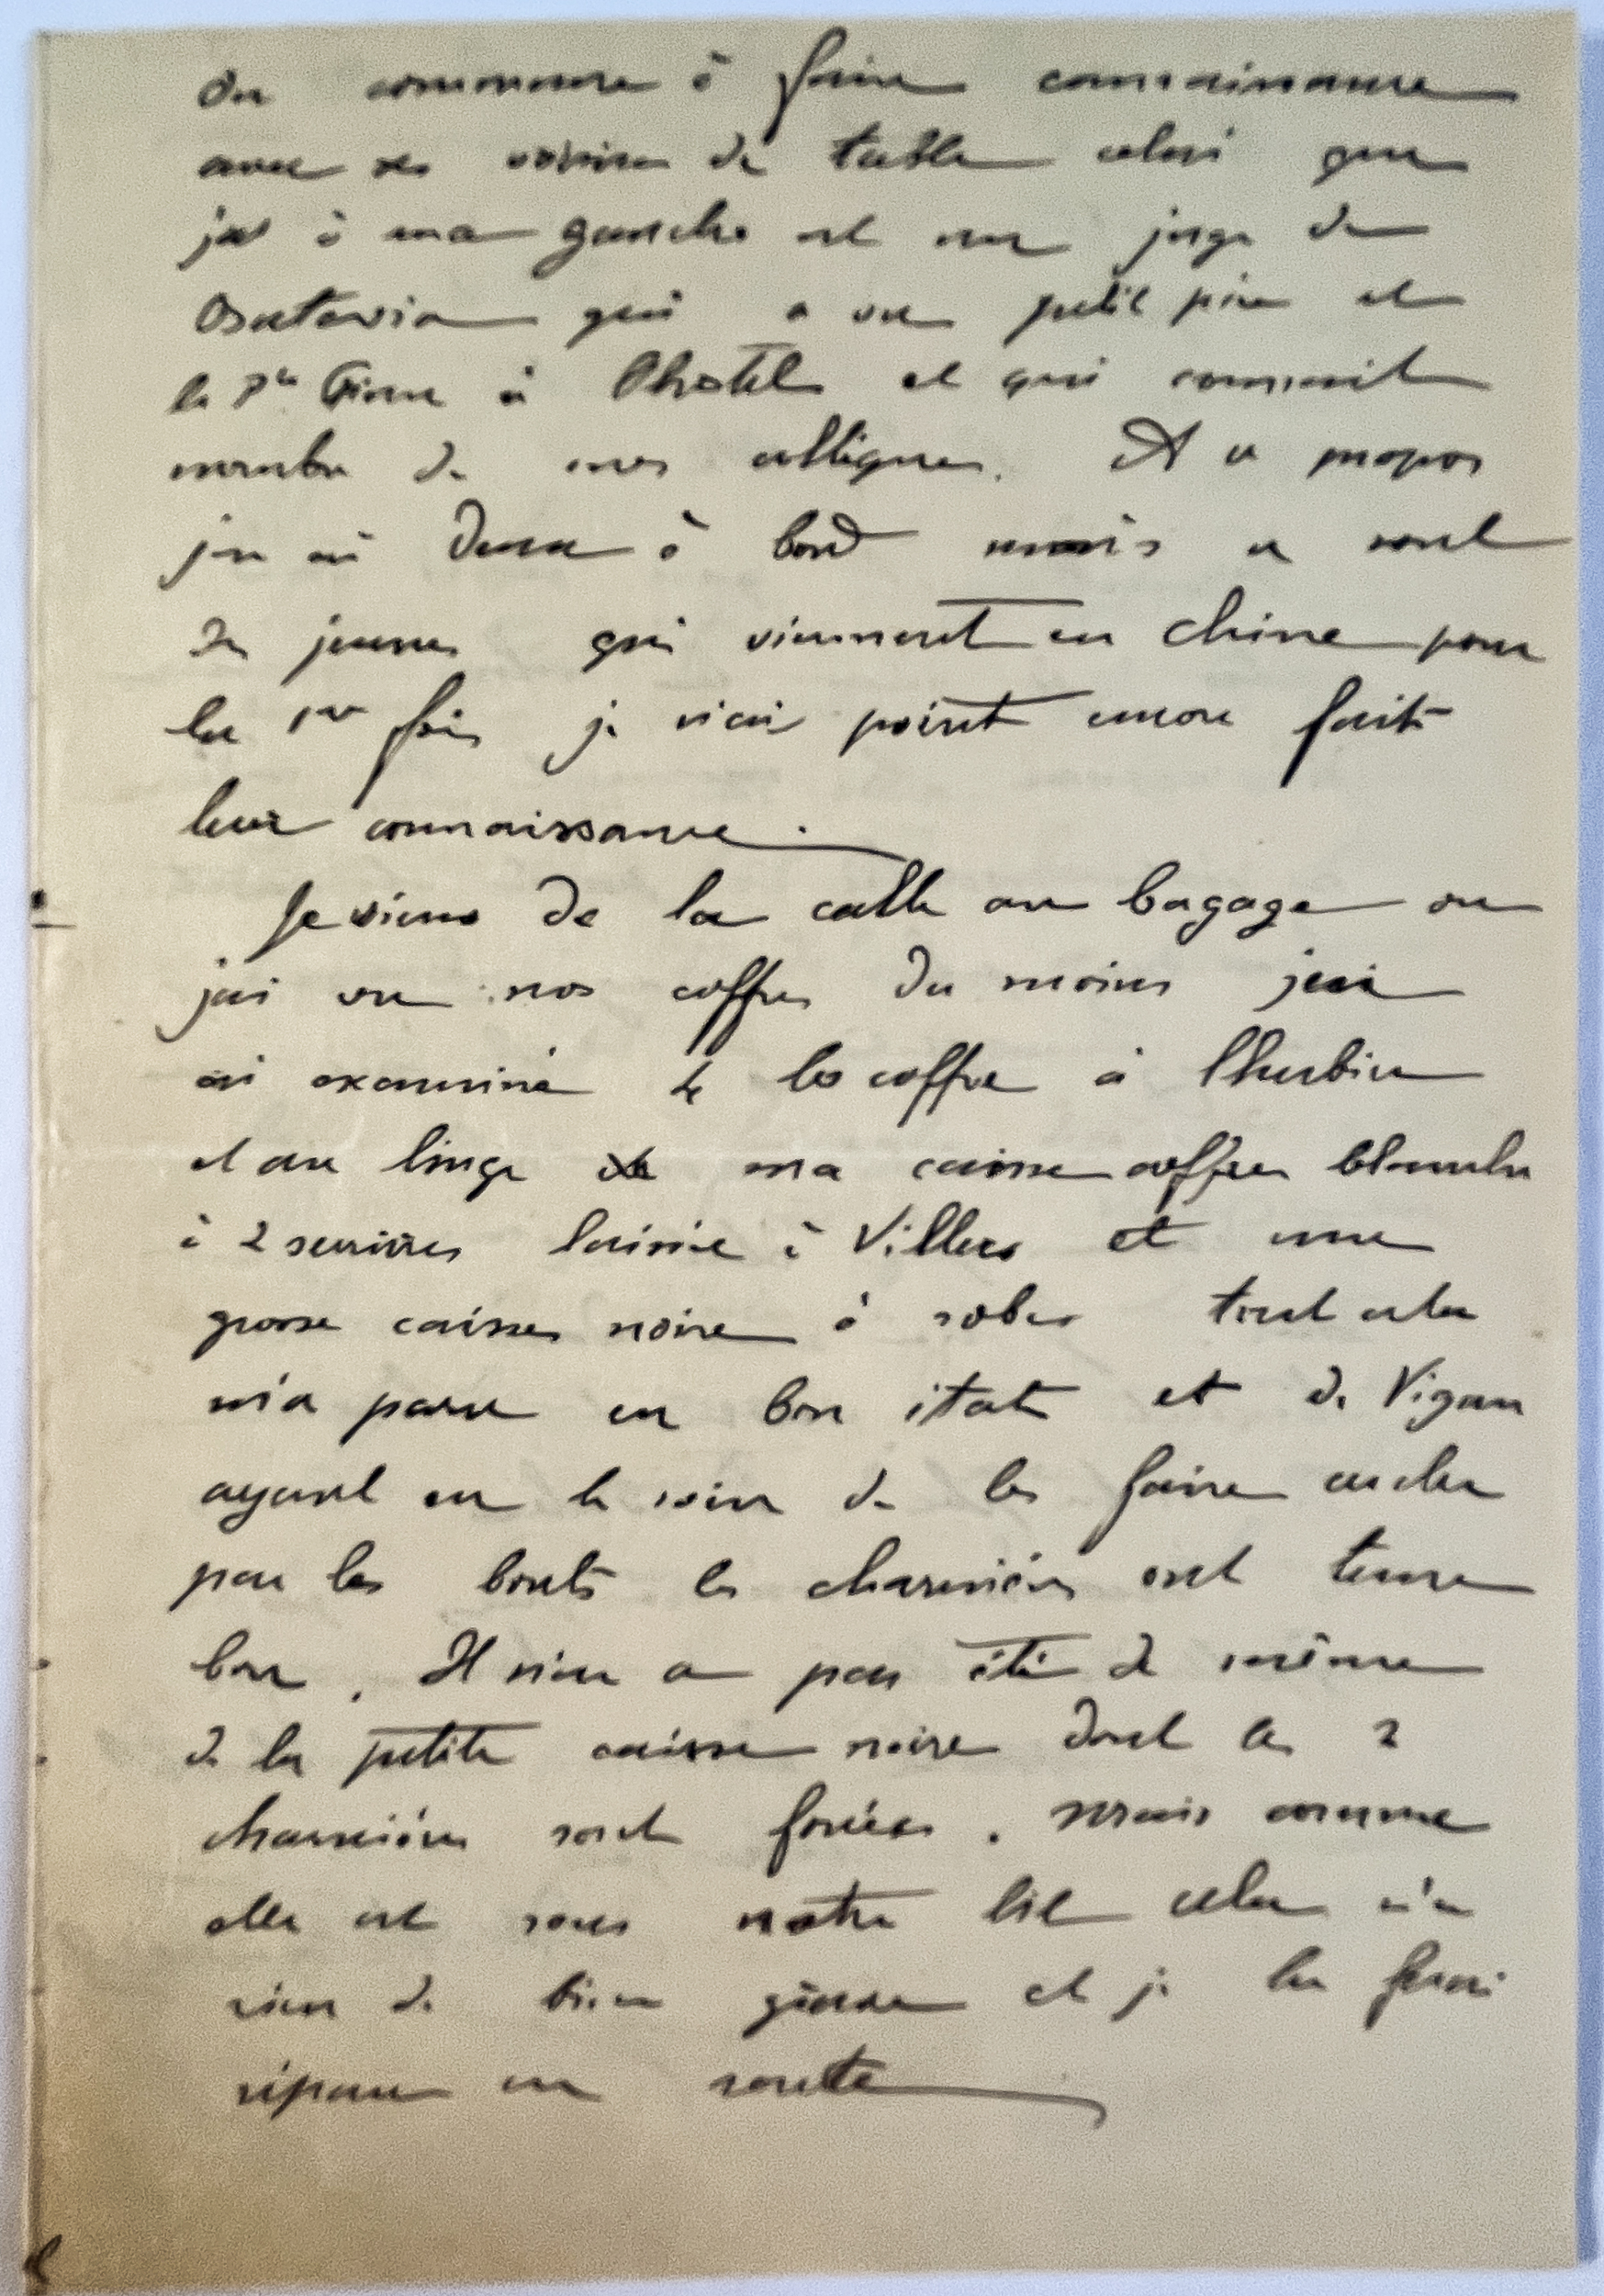 On commence à faire connaissance
avec ses voisins de table celui que
j'ai à ma gauche est un juge de
Batavia qui a vu petit père et
la à l'hotel et qui connait
nombre de mes collègues. A ce propos
j'en ai deux à bord mais ce sont
de jeunes qui viennent en Chine pour
la 1ere fois je n'ai point encore fait
leur connaissance.
Je viens de la calle au bagage ou
j'ai vu nos coffres du moins j'ai
ai examiné le coffre à
et au linge ma caisse coffre blanche
à 2 serrures laissée à Villers et une
grosse caisse noire à robes tout cela
m'a paru en bon état et de Vigan
ayant eu le soin de les faire cercler
par les bouts les charnières ont tenu
bon. Il n'en a pas été de même
de la petite caisse noire dont les 2
charnières sont forcées. Mais comme
elle est sous notre lit cela n'a
rien de bien grave et je la ferai
réparer en route